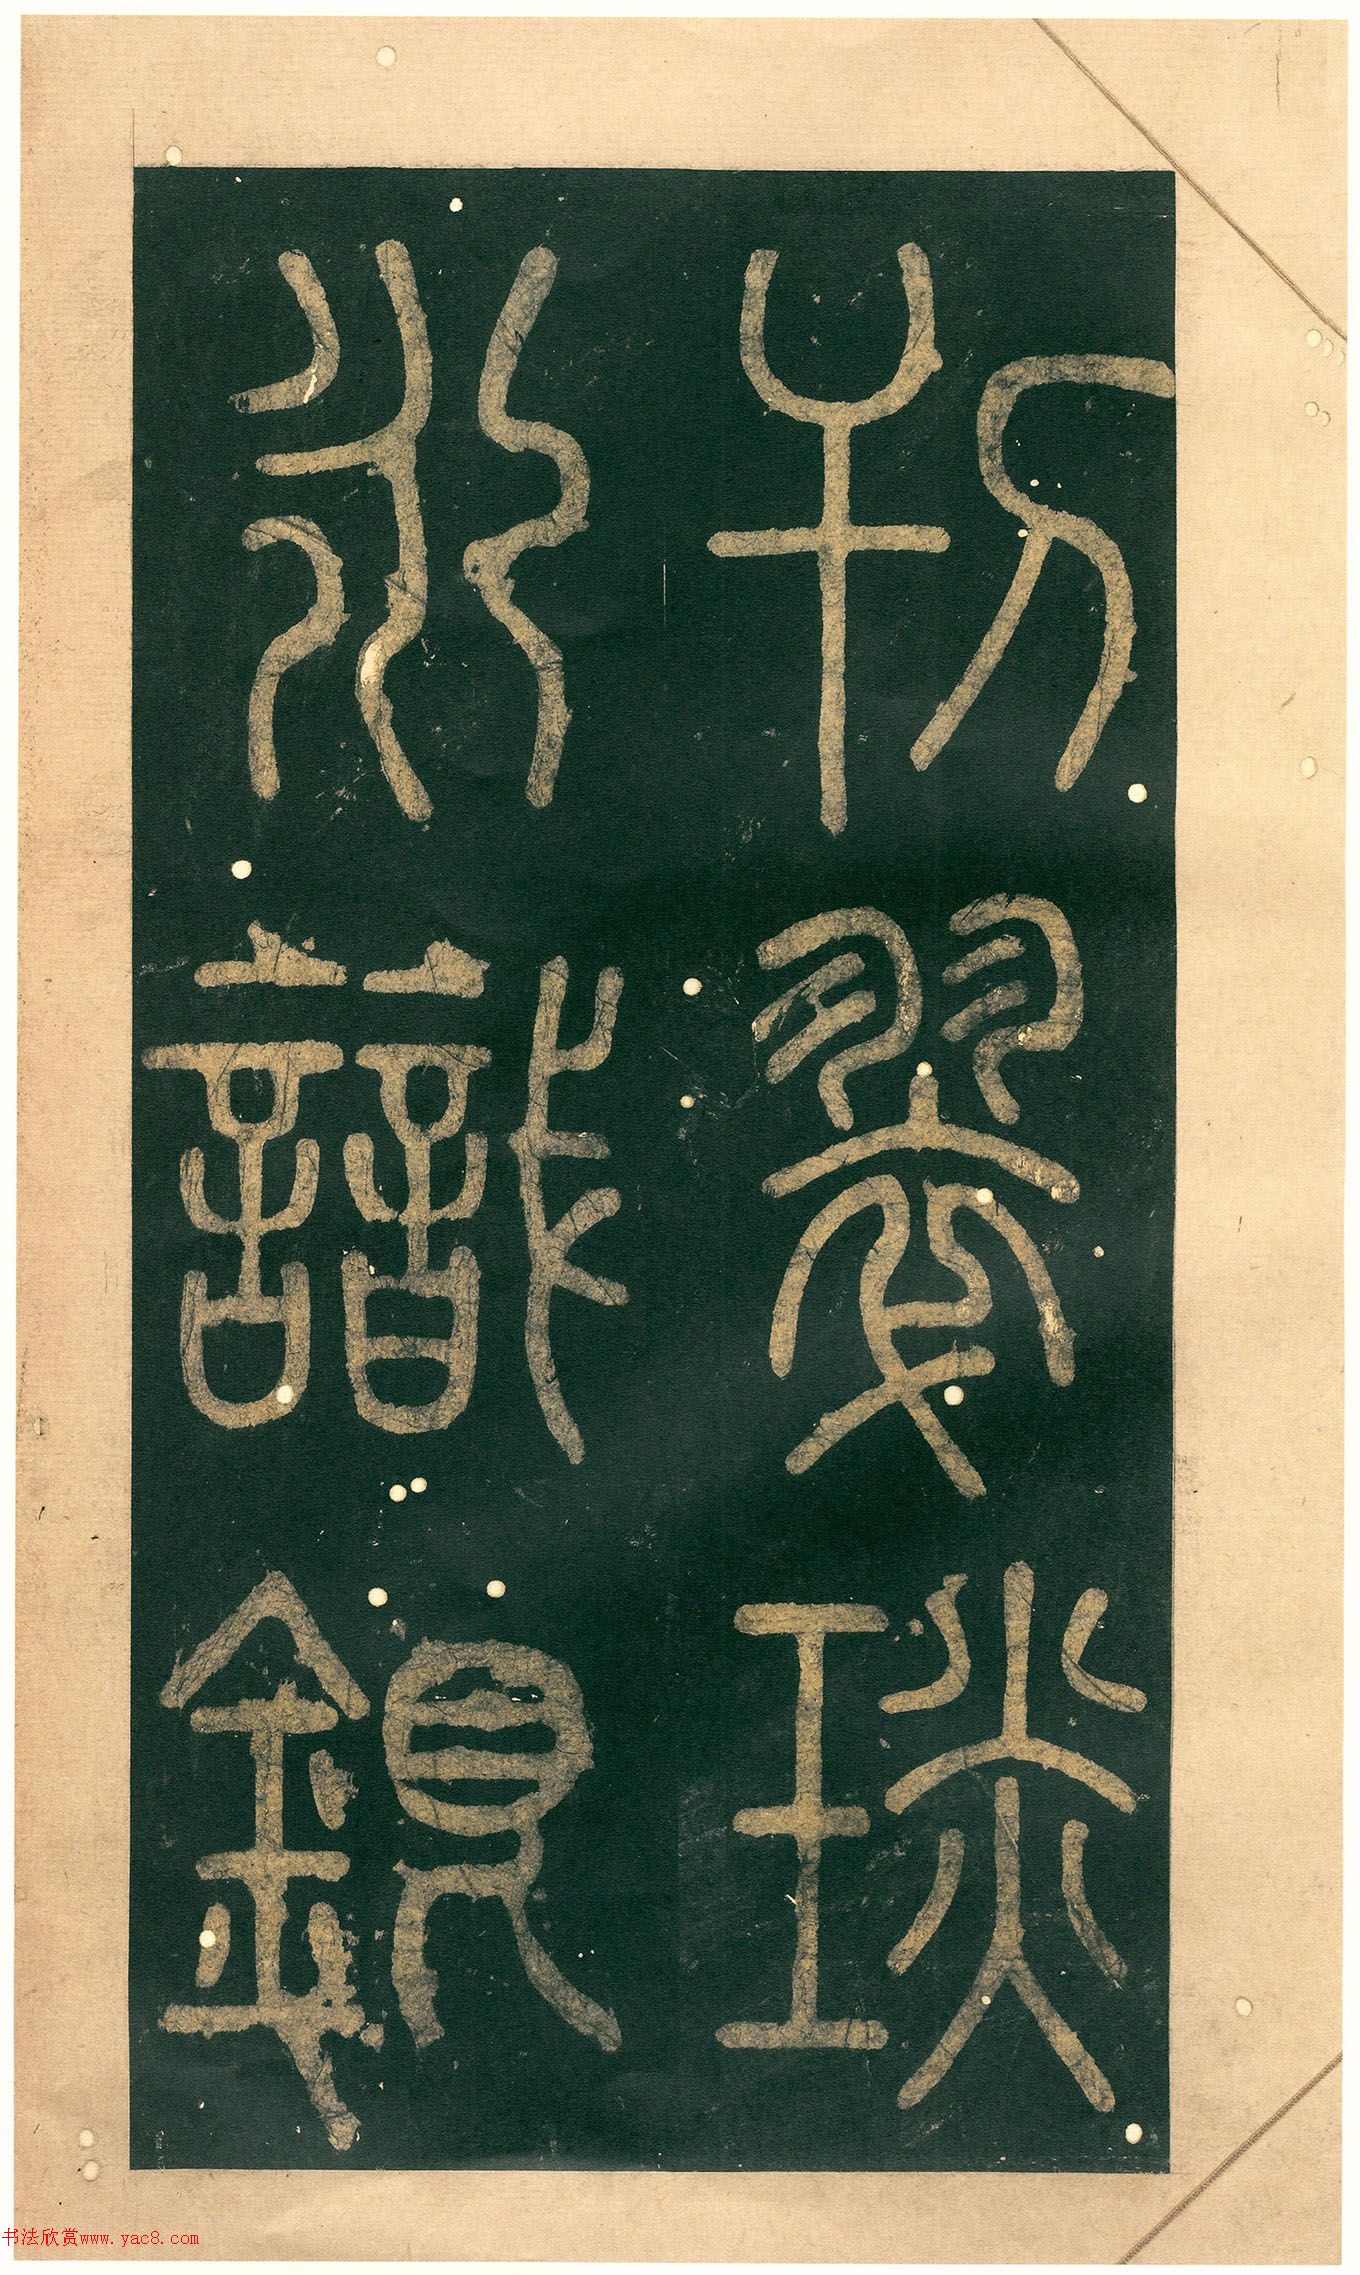 刊翠琰
永識
书法欣赏www.yac8.com